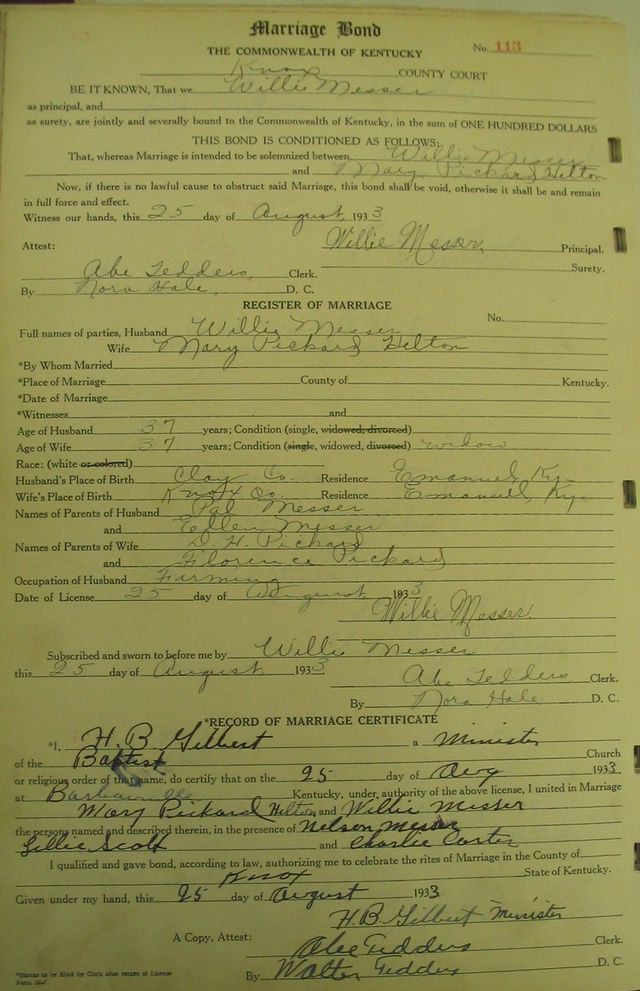 Marriage Bond
THE COMMONWEALTH OF KENTUCKY No. 113
Knox COUNTY COURT
BE IT KNOWN, That we Willie Messer
as principal, and
as surety, are jointly and severally bound to the Commonwealth of Kentucky, in the sum of ONE HUNDRED DOLLARS
THIS BOND IS CONDITIONED AS FOLLOWS:
That, whereas Marriage is intended to be solemnized between Willie Messer
and Mary Pickard Helton
Now, if there is no lawful cause to obstruct said Marriage, this bond shall be void, otherwise it shall be and remain
in full force and effect.
Witness our hands, this 25 day of August, 1933
Attest: Willie Messer Principal.
Surety.
Abe Tedders, Clerk.
By Nora Hale, D. C.
REGISTER OF MARRIAGE
No.
Full names of parties, Husband Willie Messer
Wife Mary Pickard Helton
*By Whom Married
*Place of Marriage County of Kentucky.
*Date of Marriage
*Witnesses and
Age of Husband 37 years; Condition (single, widowed, divorced)
Age of Wife 37 years; Condition (single, widowed, divorced) widow
Race: (white or colored)
Husband's Place of Birth Clay Co. Residence Emanuel, Ky.
Wife's Place of Birth Knox Co. Residence Emanuel, Ky.
Names of Parents of Husband Pal Messer
and Ellen Messer
Names of Parents of Wife D. H. Pickard
and Florence Pickard
Occupation of Husband Farming
Date of License 25 day of August 1933
Willie Messer
Subscribed and sworn to before me by Willie Messer
this 25 day of August 1933
Abe Tedders Clerk.
By Nora Hale D. C.
*RECORD OF MARRIAGE CERTIFICATE
*I, H. B Gilbert a Minister
of the Baptist Church
or religious order of that name, do certify that on the 25 day of Aug 1933
at Kentucky, under authority of the above license, I united in Marriage
Mary Pickard Helton and Willie Messer
the persons named and described therein, in the presence of Nelson Messer
Lillie Scott and Charlie Carter
I qualified and gave bond, according to law, authorizing me to celebrate the rites of Marriage in the County of
Knox State of Kentucky.
Given under my hand, this 25 day of August 1933
H. B. Gilbert Minister
A Copy, Attest: Abe Tedders Clerk.
By Walter Tedders D. C.
*Blanks to be filled by Clerk after return of License